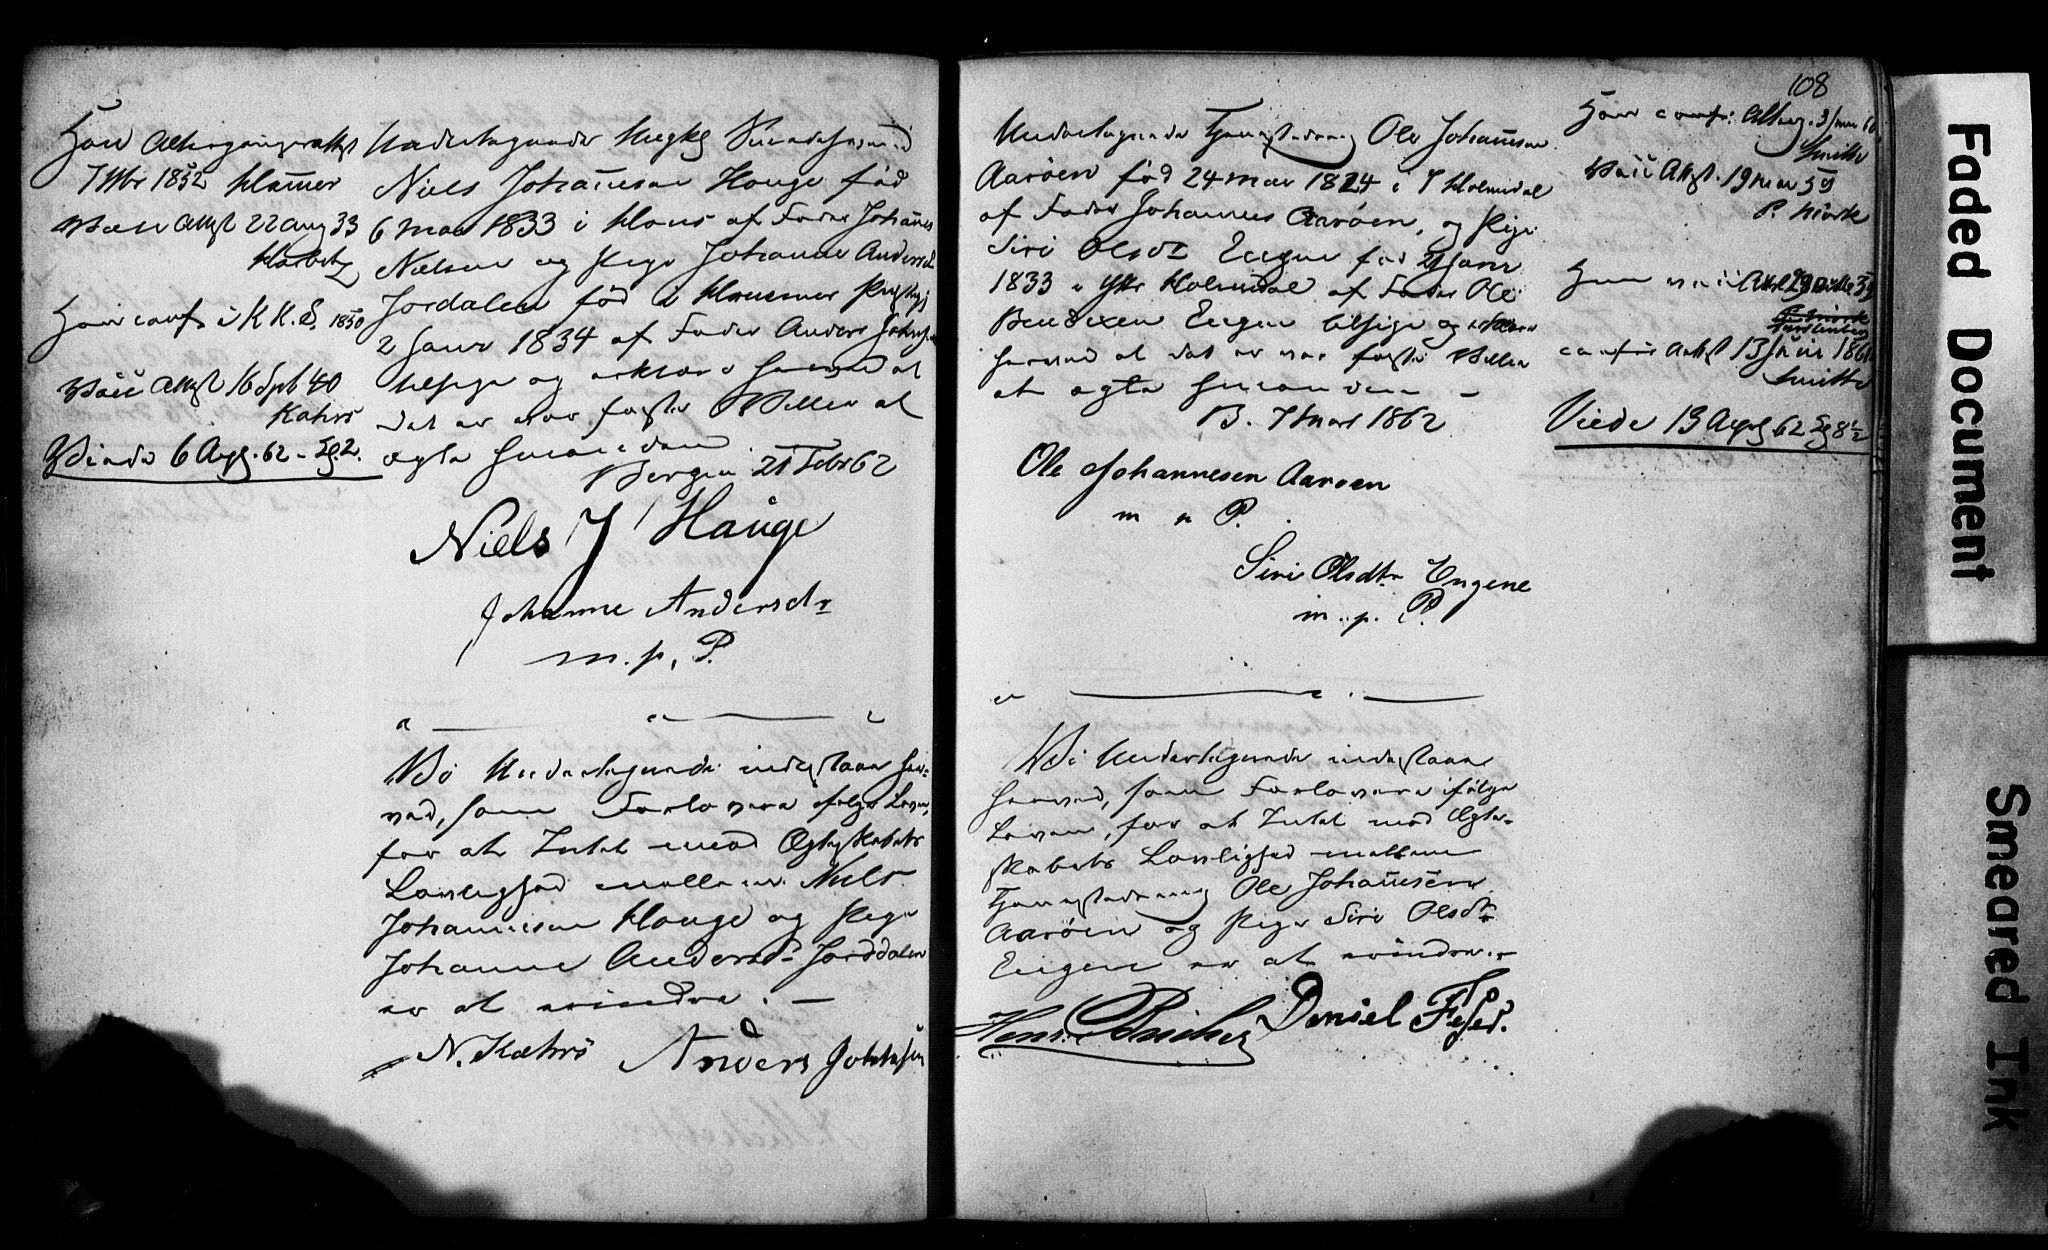 Han Altergangsattest
7 Mbr 1852 Klammer
Vacc Attst 22 aug 33
Han conf i K.K. S. 1850
Vacc Attst 16 Spb 40
Kahrs
Viede 6 Apr. 62 - Kl. 2.
Undertegnede Ungk
Niels Johannesen Houge fød
6 mai 1833 i Hous af Fader Johannes
Nielsen og Pige Johanne Andersd
Jordalen fød i Housmer Prstgj
2 Janr 1834 af Fader Anders Johnsen
tilsige og erklære herved at
det er vor faste Villie at
ægte hinanden
Bergen 21 Febr 62
Niels J Hauge
Johanne Andersdr
m. p. P.
Vi Undertegnede indestaae her-
ved, som Forlovere ifølge Loven,
for at Intet mod Ægteskabets
Lovlighed mellem Niels
Johannesen Houge og Pige
Johanne Andersd. Jorddalen
er at erindre. —
N. Kahrs Anders Johnsen
108
Undertegnede Tjenestedreng Ole Johannesen
Aarøen fød 24 mar 1824 i Y Holmedal
af Fader Johannes Aarøen, og Pige
Siri Olsdt Engene fød Janr
1833 i Ytr Holmedal af Fader Ole
Bendixen Engen tilsige og erklære
herved at det er vor faste Villie
at ægte hinanden —
B. 7 Mars 1862
Ole Johannesen Aarøen
m p P.
Siri Olsdtr Engene
m. p. P.
Vi Undertegnede indestaae
herved, som Forlovere ifølge
Loven, for at Intet mod Ægte-
skabets Lovlighed mellem
Tjenestedreng Ole Johannesen
Aarøen og Pige Siri Olsdtr
Engene er at erindre. —
Daniel
Han conf: Alterg. 3/
Smitt
Vacc Attst. 19 mar 59
P. Kiørk
Hun vacc
conf Attst 13 Juni 1861
Smitt
Viede 13 Apr 62 Kl 8 1/2
Faded Document
Smeared Ink